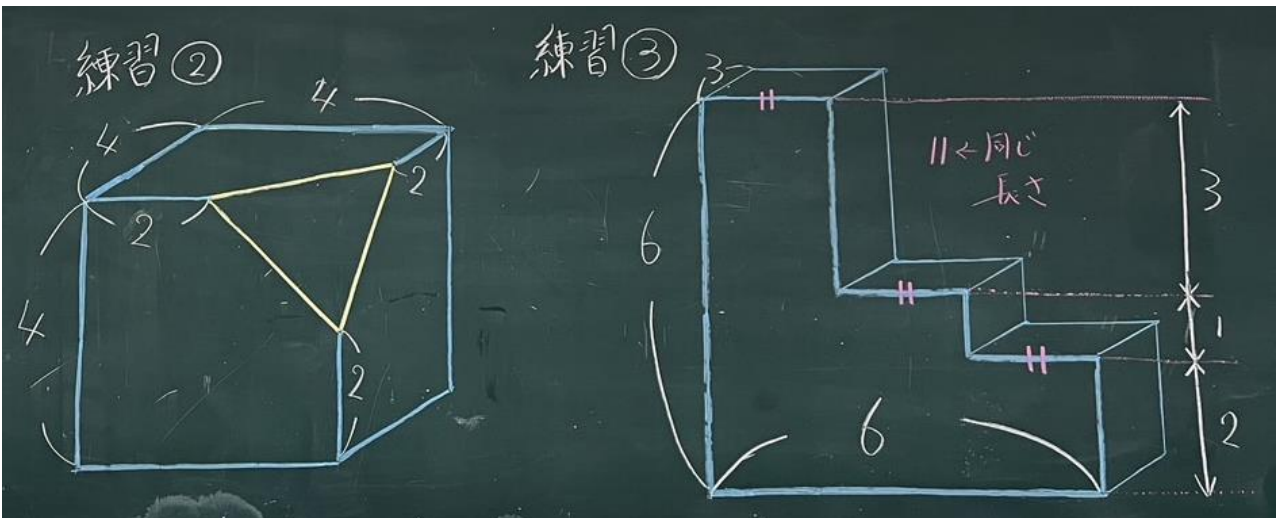 練習②
4
4
2
2
4
2
練習③
3
||←同じ
長さ
3
6
1
6
2